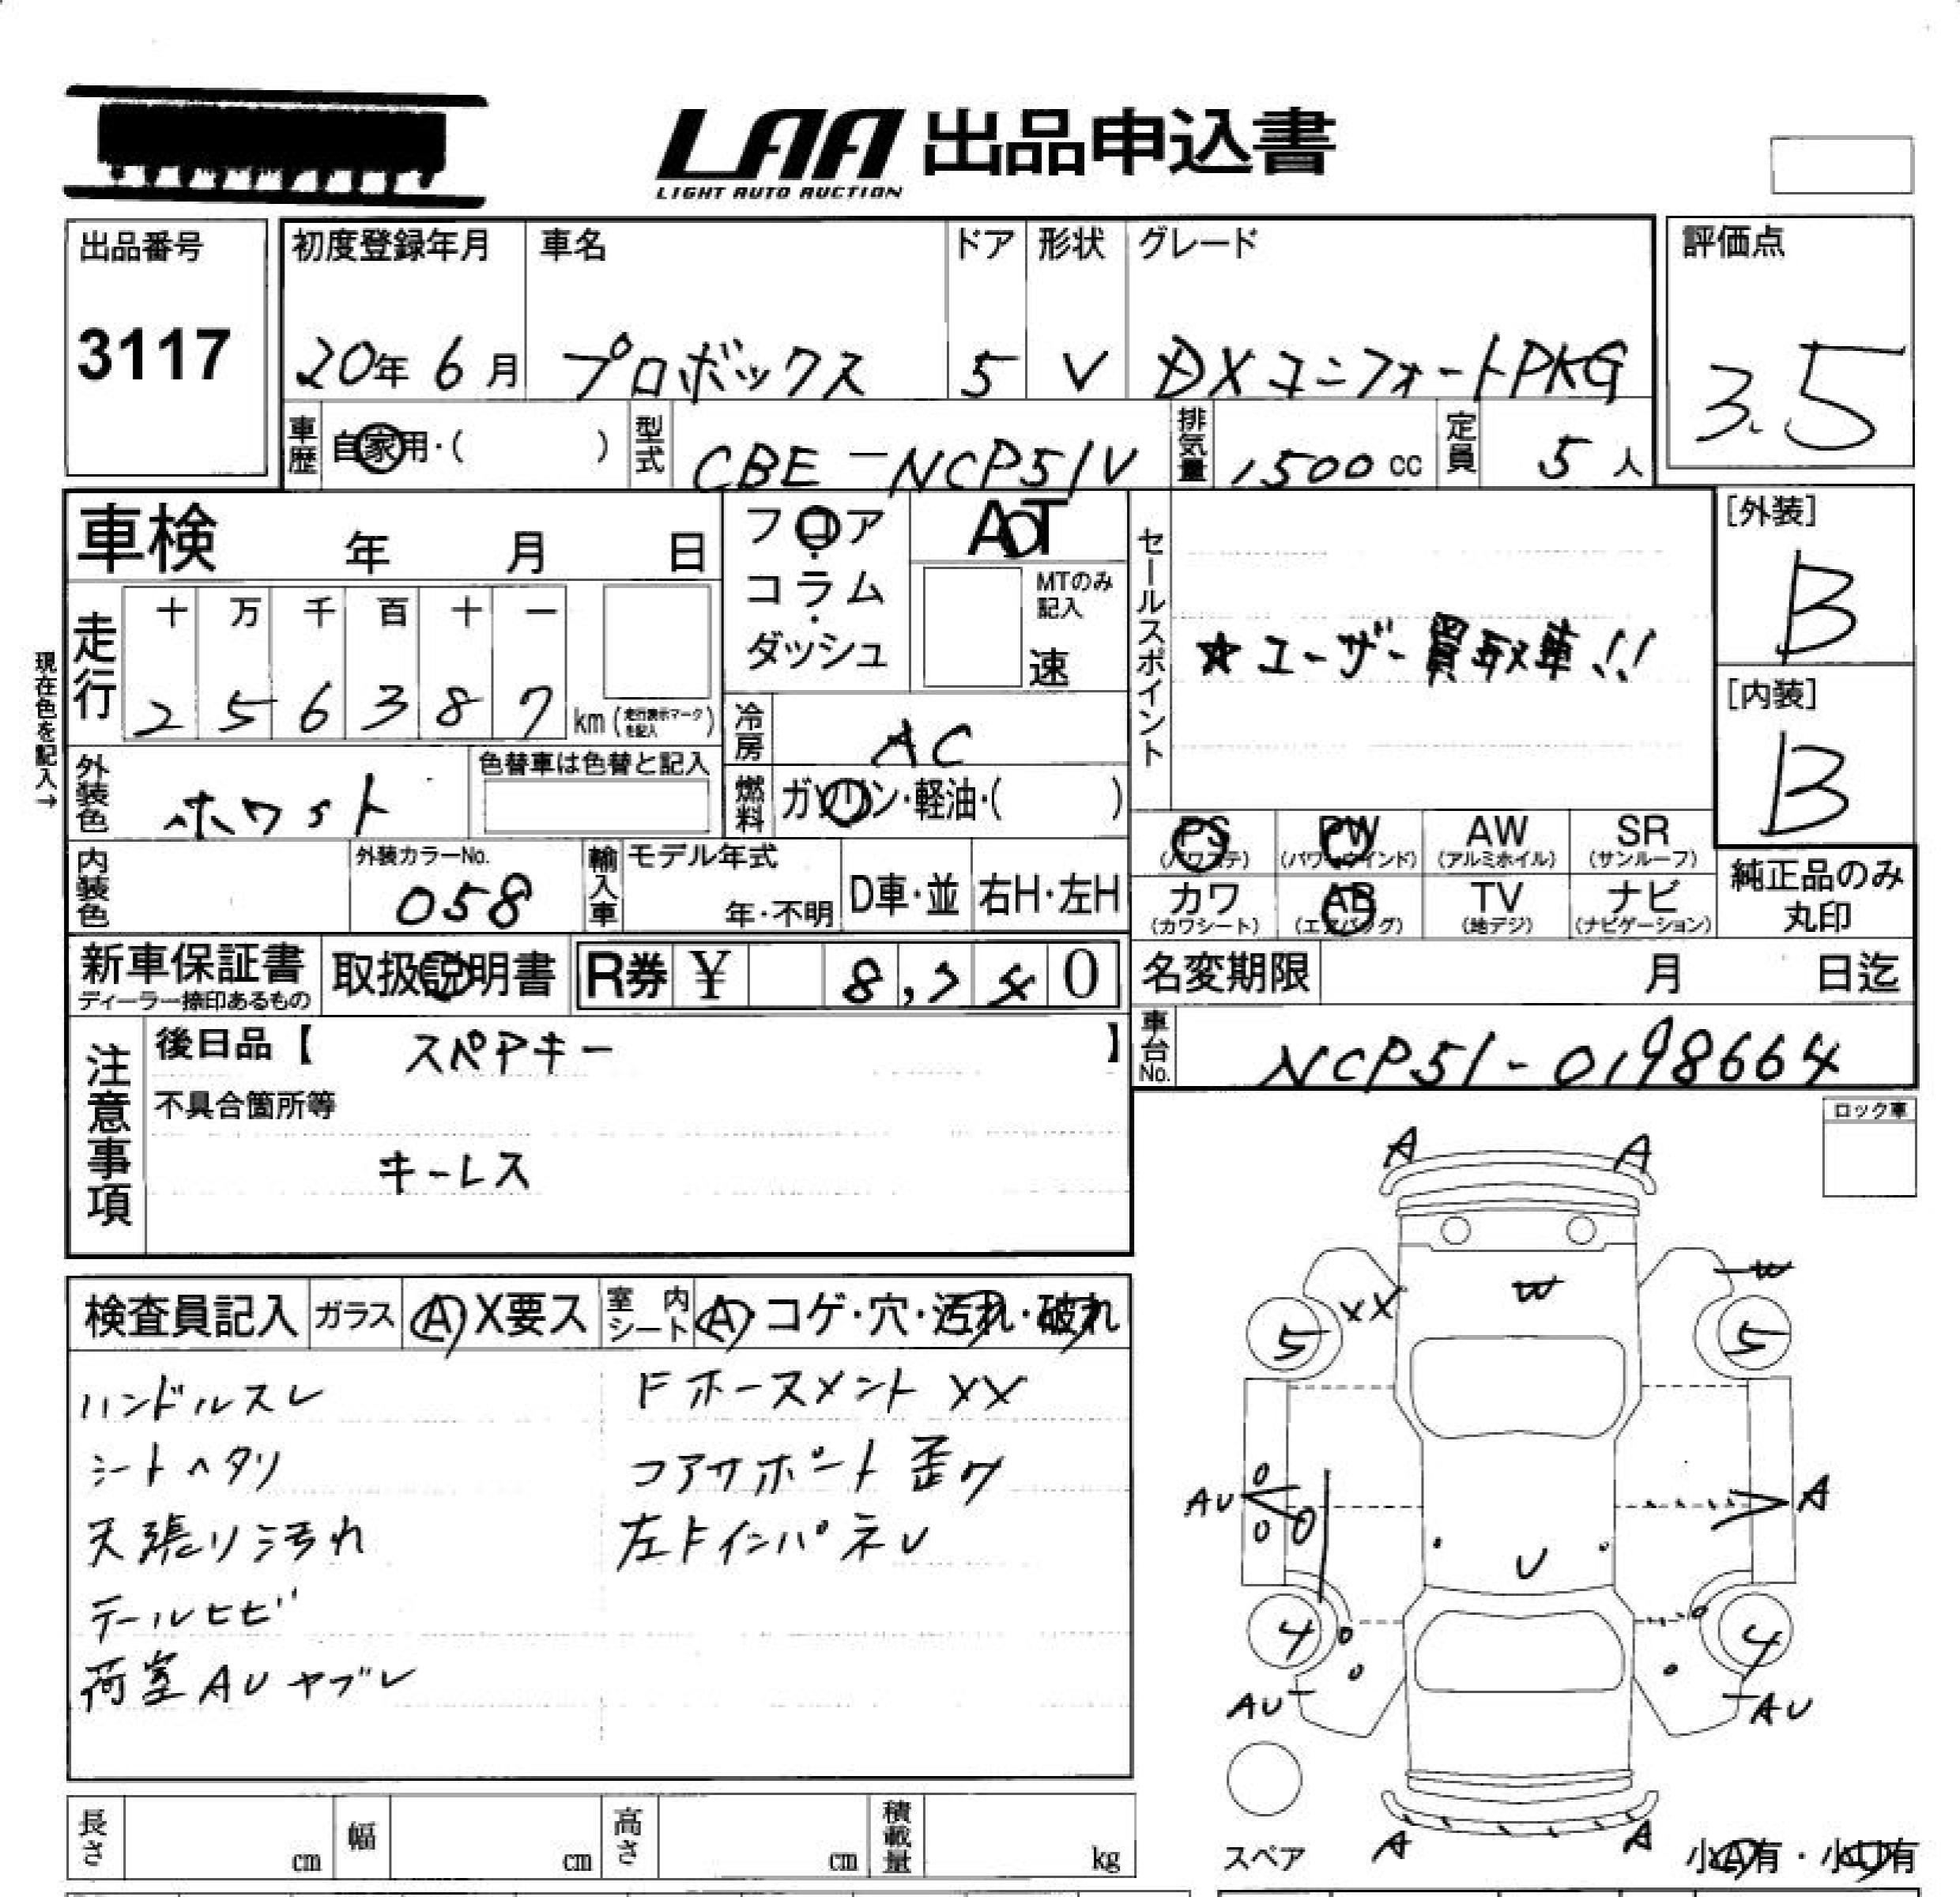 LAA 出品申込書
LIGHT AUTO AUCTION
出品番号
3117
初度登録年月 車名 ドア 形状 グレード
20年 6月 プロボックス 5 V DXコンフォートPKG
評価点
3.5
車歴 自家用・( ) 型式 CBE-NCP51V 排気量 1500cc 定員 5人
車検 年 月 日
フロア・コラム・ダッシュ
AT
MTのみ記入
速
セールスポイント
★ユーザー買取車!!
[外装]
B
[内装]
B
現在色を記入→
走行 十 万 千 百 十 一
2 5 6 3 8 7 km (走行表示マークを記入)
冷房 AC
外装色 ホワイト
色替車は色替と記入
燃料 ガソリン・軽油・( )
内装色
外装カラーNo.
058
輸入車 モデル年式
年・不明
D車・並 右H・左H
PS (パワステ) PW (パワーウインド) AW (アルミホイル) SR (サンルーフ)
カワ (カワシート) AB (エアバッグ) TV (地デジ) ナビ (ナビゲーション)
純正品のみ丸印
新車保証書
ディーラー捺印あるもの
取扱説明書
R券 ¥ 8,740
名変期限 月 日迄
車台No. NCP51-0198664
注意事項
後日品【 スペアキー 】
不具合箇所等
キーレス
ロック車
検査員記入 ガラス A X要ス 室内シート A・コゲ・穴・汚れ・破れ
ハンドルスレ
シートヘタリ
天張り汚れ
テールヒビ
荷室AUヤブレ
Fホースメント XX
コアサポート歪ワ
左FインパネU
A A
XX W W
5 5
AU A
U
4 4
AU AU
A A
スペア
小A有・小U有
長さ cm 幅 cm 高さ cm 積載量 kg